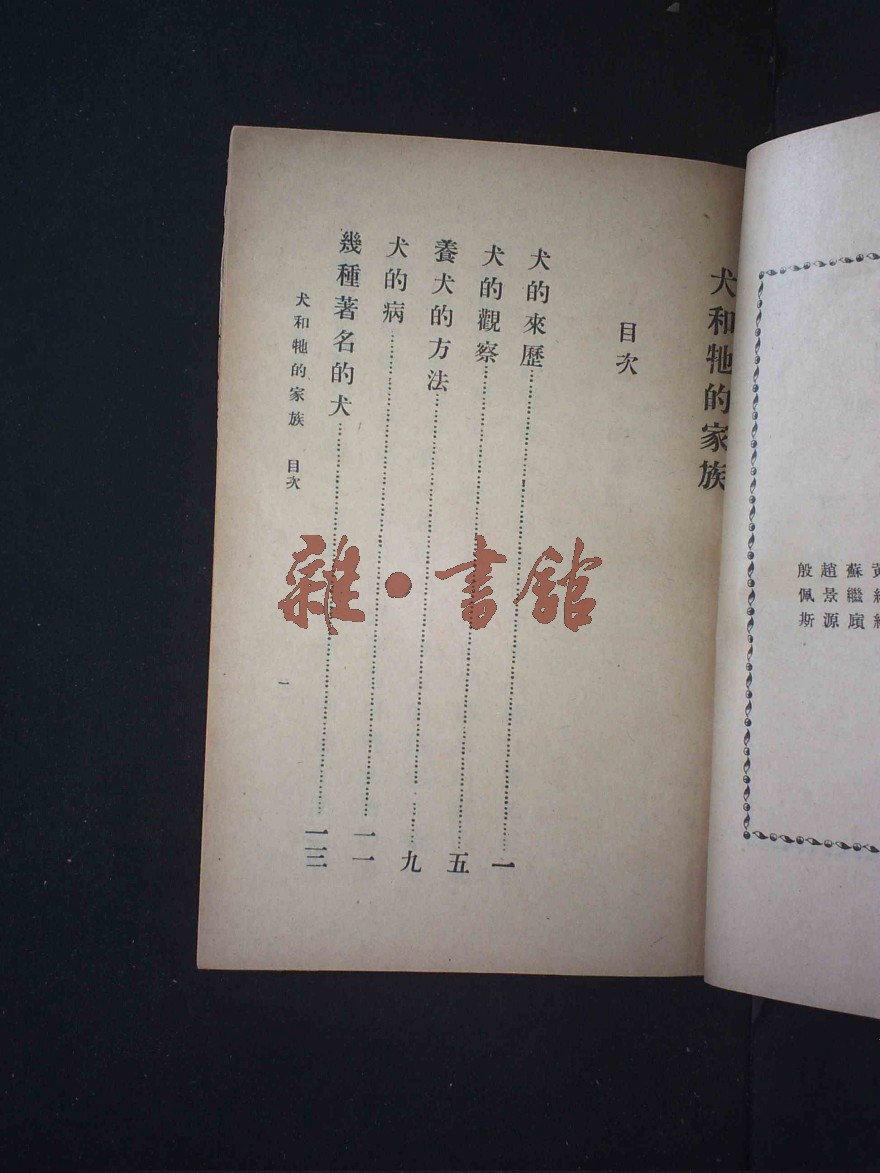 殷佩斯
趙景源
蘇繼廎
犬和牠的家族
目次
犬的來歷…………一
犬的觀察…………五
養犬的方法…………九
犬的病…………一一
幾種著名的犬…………一三
犬和牠的家族 目次
一
雜·書館